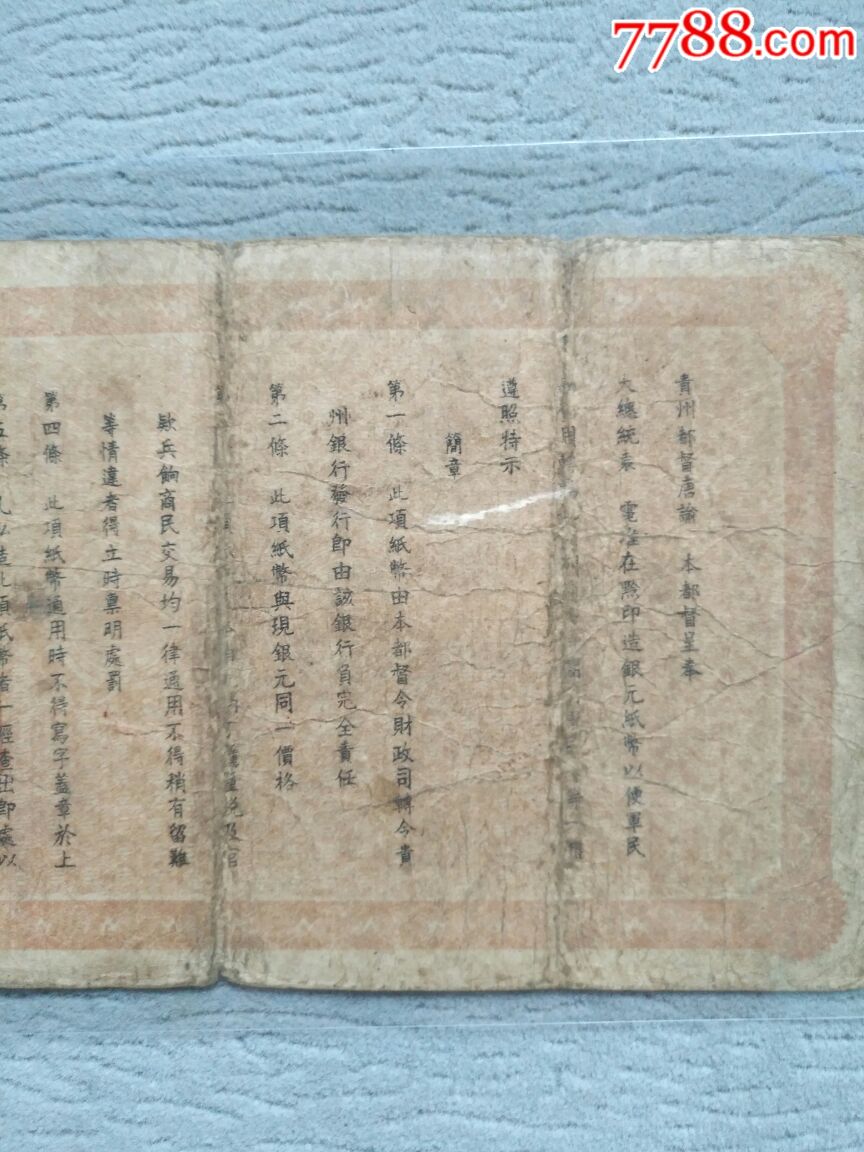 7788.com
貴州都督唐諭 本都督呈奉
大總統袁 電准在黔印造銀元紙幣以便軍民
遵照特示
簡章
第一條 此項紙幣由本都督令財政司轉令貴
州銀行發行即由該銀行負完全責任
第二條 此項紙幣與現銀元同一價格
匯兌及官
欵兵餉商民交易均一律通用不得稍有留難
等情違者得立時稟明處罰
第四條 此項紙幣通用時不得寫字蓋章於上
第五條 凡 造此項紙幣者一經查出即處以